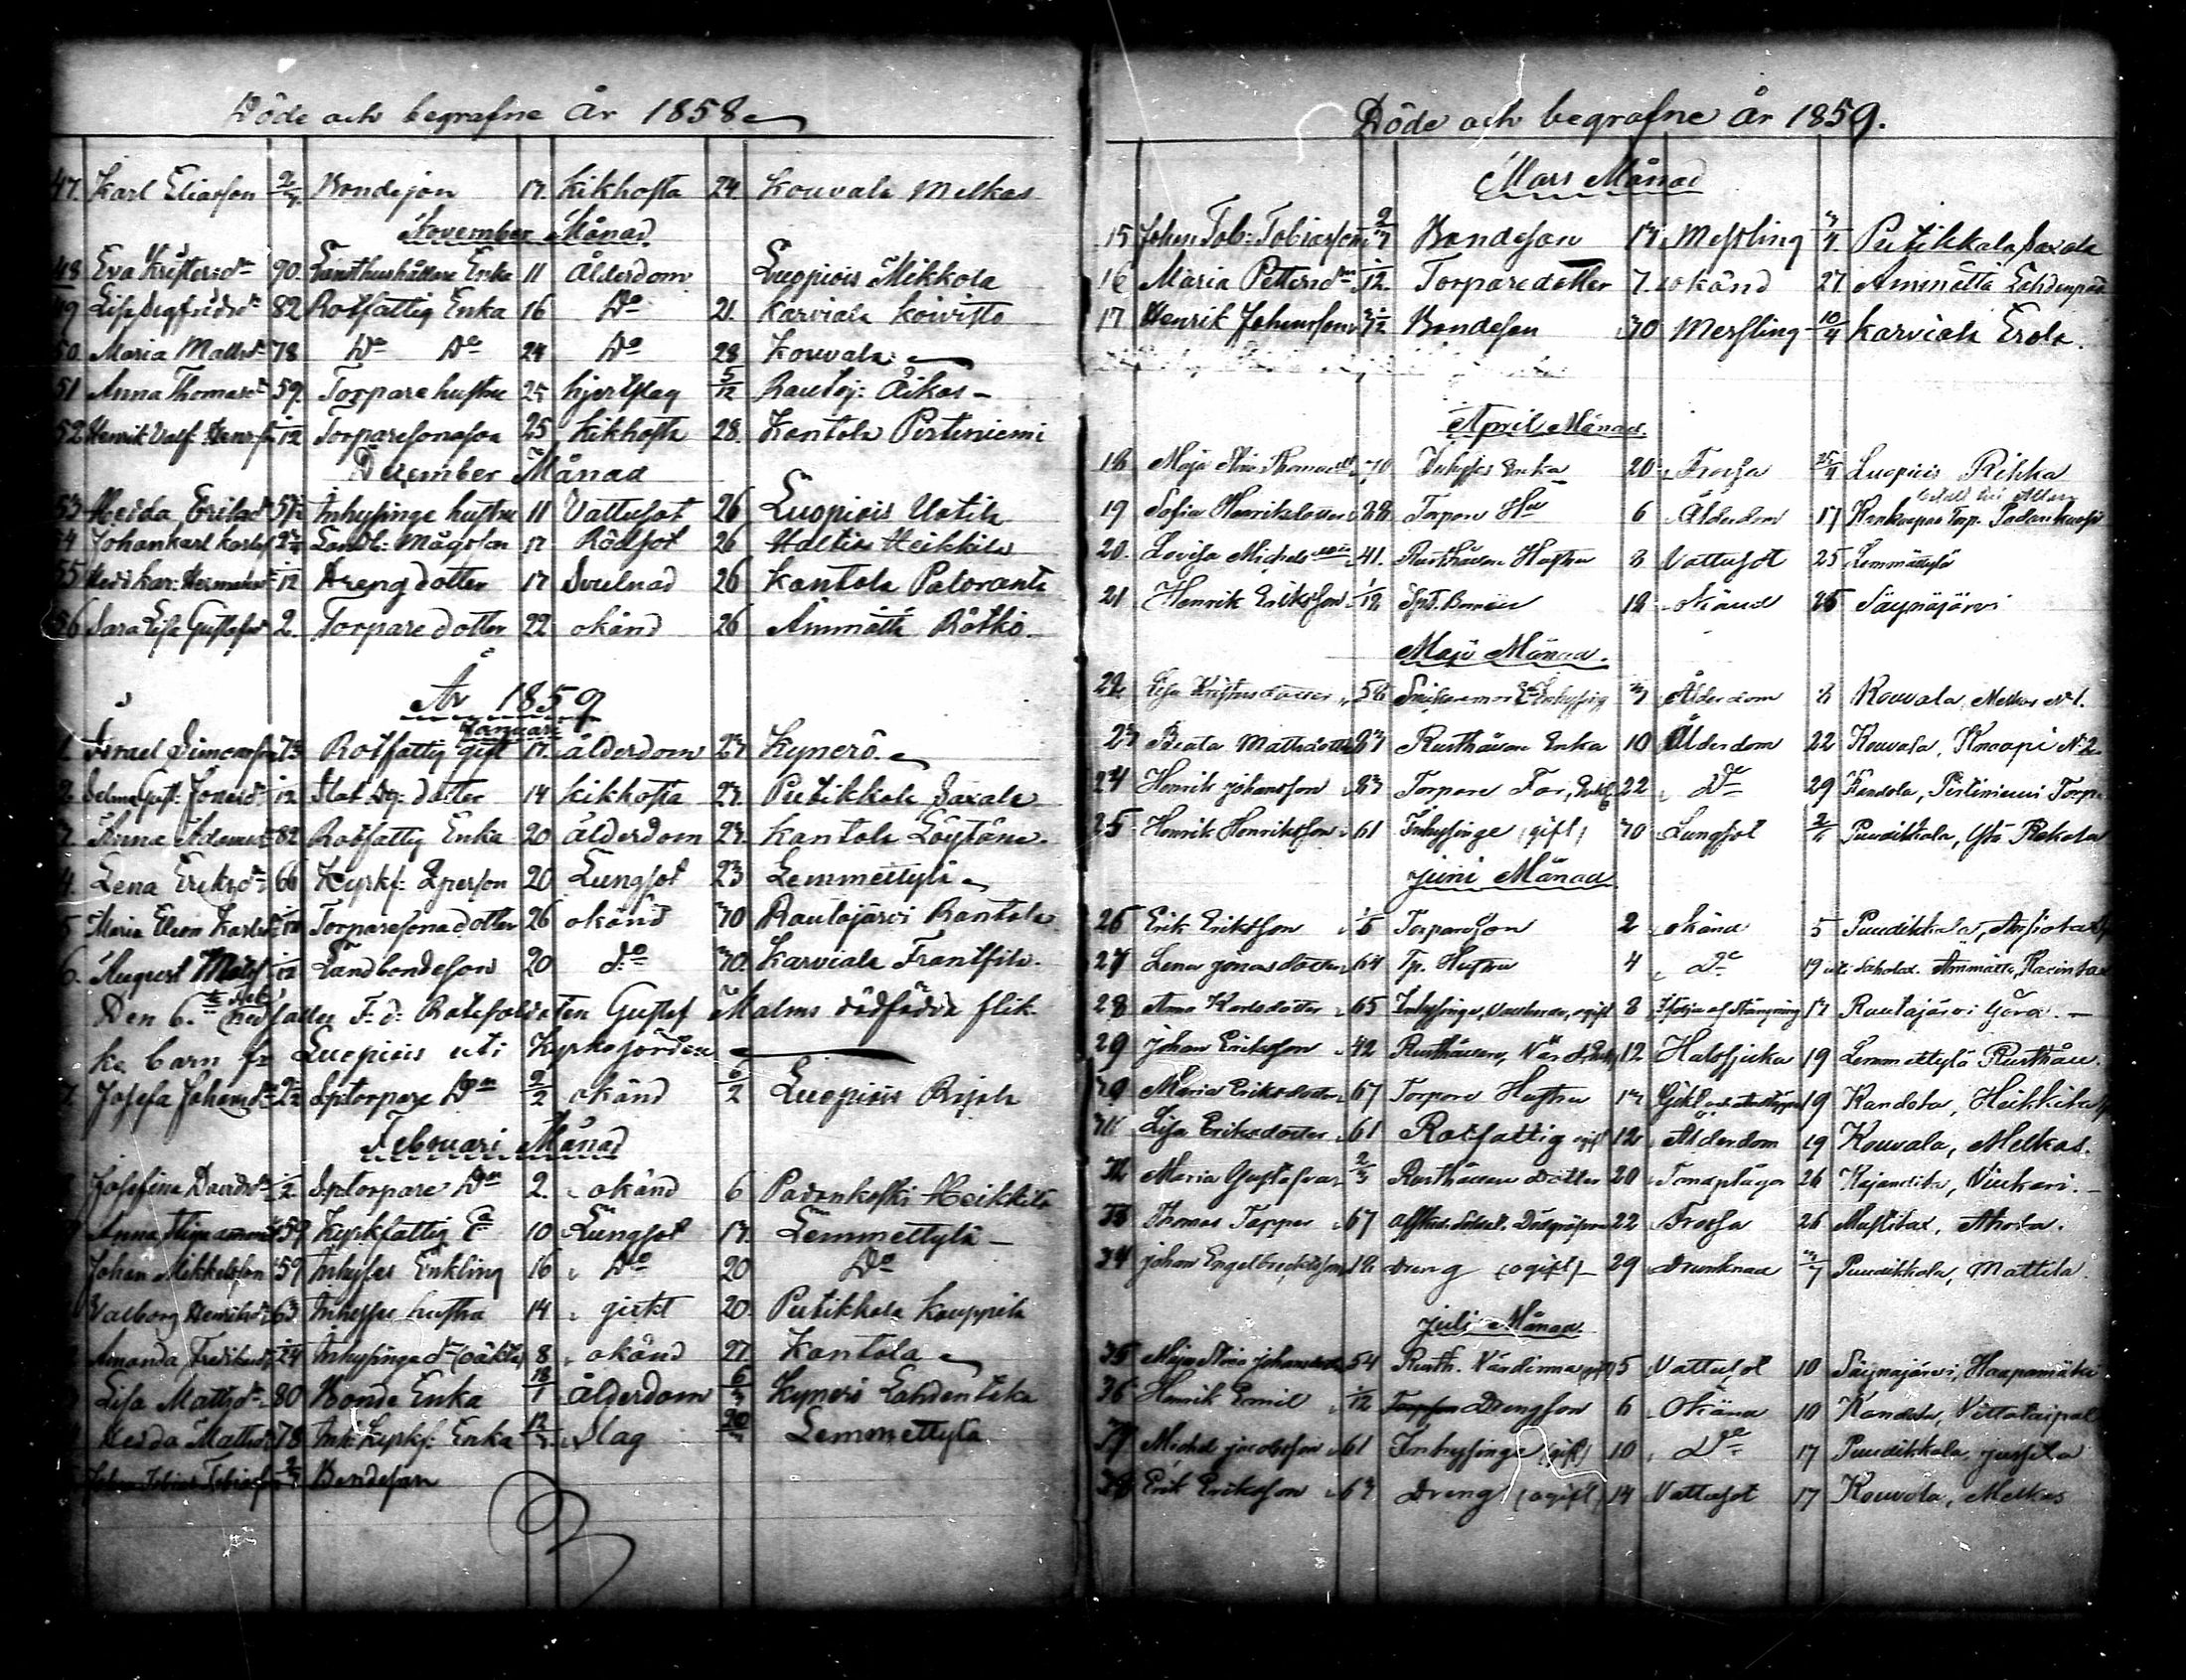 Döde och begrafne År 1858
47. Karl Eliasson Bondeson 17. Kikhosta 24. Kouvala Melkas
November Månad
48 Eva Kristersdr 90. Enka 11 Ålderdom Luopiois Mikkola
49 Lisa Sigfridsdr 82 Rotfattig Enka 16 Do 21. Karviala Koivisto
50. Maria Mattsdr 78 Do Do 24 Do 28 Kouvala
51 Anna Thomasdr 59. Torpare hustru 25 hjertslag 5/12 Rautaj: Äikäs
52 Henrik Valf. 1/12 Torparesonason 25 Kikhosta 28. Kantola Pertiniemi
December Månad
53 Hedda Eriksdr Inhysinge hustru 11 Vattusot 26 Luopiois Uotila
54 Johan Karl Karlss Landb: Mågson 17 Rödsot 26 Haltia Heikkilä
55 Hed: Kar: Hermansdr 1/12 Drengdotter 17 Svulnad 26 Kantola Patoranta
56 Sara Lisa Gustafsdr 2. Torpare dotter 22 okänd 26 Ämmätsä Rötkö
År 1859
Januari
1. Israel Simonsson 73 Rotfattig gift 17. ålderdom 23 Kynerö
2. Selma Gust: Jonasdr 1/12 Stat Dg: dotter 14 kikhosta 23. Puutikkala Saxala
3. Anna Adamsdr 82 Rotfattig Enka 20 ålderdom 23. Kantola Löytäne
4. Lena Eriksdr 66 Kyrkf: Qperson 20 Lungsot 23 Lemmettylä
5 Maria Karlsdr Torparesonadotter 26 okänd 30 Rautajärvi Rantala
6. August 1/12 Landbondeson 20 do 30. Karviala Frantsila
Den 6. nedsattes F: d: Rotesoldaten Gustaf Malms dödfödda flic-
ka barn fr Luopiois uti Kyrkojorden
7. Josefa Johansdr Sptorpare Dtr 2/2 okänd 6/2 Luopiois
Februari Månad
Josefina Davidsdr 1/2 Sptorpare Dtr 2. okänd 6 Padankoski Heikkilä
Anna 59 Kyrkfattig Ea 10 Lungsot 13. Lemmettylä
Johan Mikkelsson 59 Inhyses Enkling 16 Do 20 Do
Valborg Henriksdr 63 Inhyses hustru 14 gikt 20 Puutikkala Kauppila
Amanda Fredriksdr Inhysinge dr (oäkta) 8 okänd 27 Kantola
Lisa Mattsdr 80 Bonde Enka 18/1 ålderdom 6/3 Kynerö Lahdentaka
Hedda Mattsdr 78 Inh: Kyrkf: Enka Slag 20/3 Lemmettylä
Johan Tobias Tobiasson Bondeson
Döde och begrafne År 1859.
Mars Månad
15 Johan Tob: Tobiasson 2/3 Bondeson 13 Messling Puutikkala Saxala
16 Maria Pettersdr 1/12. Torparedotter 7. okänd 27. Ämmätsä Lahdenpää
17 Henrik Johansson Bondeson 30 Messling 10/4 Karviala Erola
April Månad
18 Maja Stina Thomasdr 70 Inhyses Enka 20 Frossa 25/4 Luopiois Rihka
19 Sofia Henriksdotter 88 Torpare Hu 6 Ålderdom 17 Padankoski
20. Lovisa Michelsdotter 41. Rusthållare Hustru 8 Vattusot 25 Lemmättylä
21 Henrik Eriksson 1/12 Spt. 12 okänd 25 Säynäjärvi
Maji Månad
22 Lisa Kristersdotter 58 3 Ålderdom 8 Kouvala, Melkas No 1.
23 Beata Mattsdotter 83 Rusthållare Enka 10 Ålderdom 22 Kouvala, Knaapi No 2.
24 Henrik Johansson 83 Torpare Far, Enkl. 22 Do 29 Kandola, Pertiniemi Torp
25 Henrik Henriksson 61 Inhysinge (gift) 30 Lungsot Puudikkala, Rekola
Juni Månad
26 Erik Eriksson Torpareson 2 okänd 5 Puudikkala, Arsiola
27 Lena Jonasdotter 64 Tp. Hustru 4 Do 19 Ämmättä,
28 Anna Karlsdotter 65 Inhysinge, ogift 8 af Stångning 13 Rautajärvi Göra
29 Johan Eriksson 42 Rusthållare, 12 Halssjuka 19 Lemmettylä Rusthåll
30 Maria Eriksdotter 67 Torpare Hustru 13 Gikt 19 Kandola, Heikkilä
31 Lisa Eriksdotter 61 Rotfattig ogift 12 Ålderdom 19 Kouvala, Melkas.
32 Maria Gustafva 2/3 Rusthållare Dotter 20 Tandplågor 26 Kajandila, Niukari.
33 Thomas Tapper 67 Afsked. Soldat. Dödgräfvare 22 Frossa 26
34 Johan Engelbrechtsson 18 Dreng (ogift) 29 Drunknad 3/7 Puudikkala, Mattila
Juli Månad
35 Maja Stina Johansdotter 54 Rusth. Värdinna 5 Vattusot 10 Säynäjärvi, Haapamäki
36 Henrik Emil 1/12 Drengson 6 Okänd 10 Kandola,
37 Michel Jacobsson 61 Inhysinge (gift) 10 Do 17 Puudikkala, Jussila
38 Erik Eriksson 63 Dreng (ogift) 14 Vattusot 17 Kouvola, Melkas